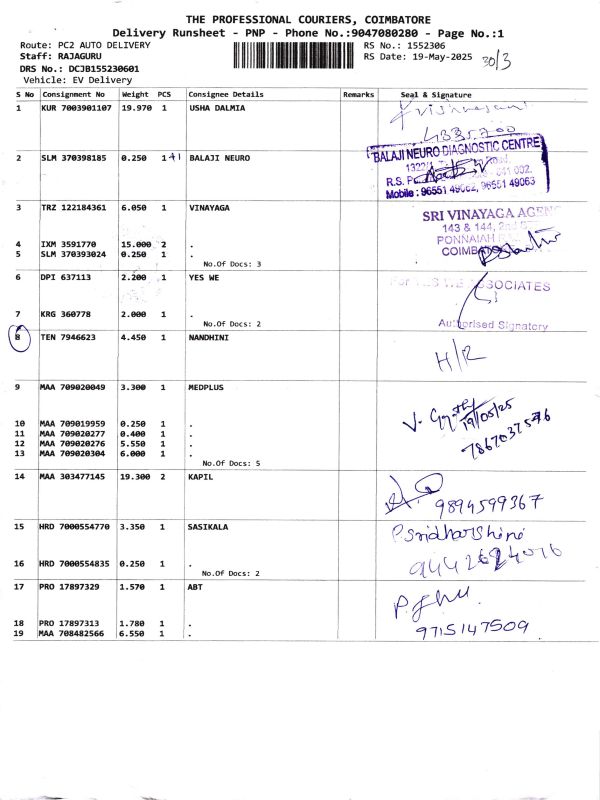 THE PROFESSIONAL COURIERS, COIMBATORE
Delivery Runsheet - PNP - Phone No.:9047080280 - Page No.:1
Route: PC2 AUTO DELIVERY
RS No.: 1552306
Staff: RAJAGURU
RS Date: 19-May-2025
30/3
DRS No.: DCJB155230601
Vehicle: EV Delivery
S No Consignment No Weight PCS Consignee Details Remarks Seal & Signature
1 KUR 7003901107 19.970 1 USHA DALMIA
2 SLM 370398185 0.250 1 +1 BALAJI NEURO
BALAJI NEURO DIAGNOSTIC CENTRE
R.S.
Mobile : 96551 49062, 96551 49063
3 TRZ 122184361 6.050 1 VINAYAGA
SRI VINAYAGA AGEN
143 & 144,
PONNAIAH
COIMB
4 IXM 3591770 15.000 2 .
5 SLM 370393024 0.250 1 .
No.Of Docs: 3
6 DPI 637113 2.200 1 YES WE
For YES WE ASSOCIATES
7 KRG 360778 2.000 1 .
No.Of Docs: 2
Authorised Signatory
8 TEN 7946623 4.450 1 NANDHINI
H/R
9 MAA 709020049 3.300 1 MEDPLUS
19/05/25
7867037576
10 MAA 709019959 0.250 1 .
11 MAA 709020277 0.400 1 .
12 MAA 709020276 5.550 1 .
13 MAA 709020304 6.000 1 .
No.Of Docs: 5
14 MAA 303477145 19.300 2 KAPIL
9894599367
15 HRD 7000554770 3.350 1 SASIKALA
P.Sridharshini
16 HRD 7000554835 0.250 1 .
No.Of Docs: 2
17 PRO 17897329 1.570 1 ABT
18 PRO 17897313 1.780 1 .
19 MAA 708482566 6.550 1 .
9715147509